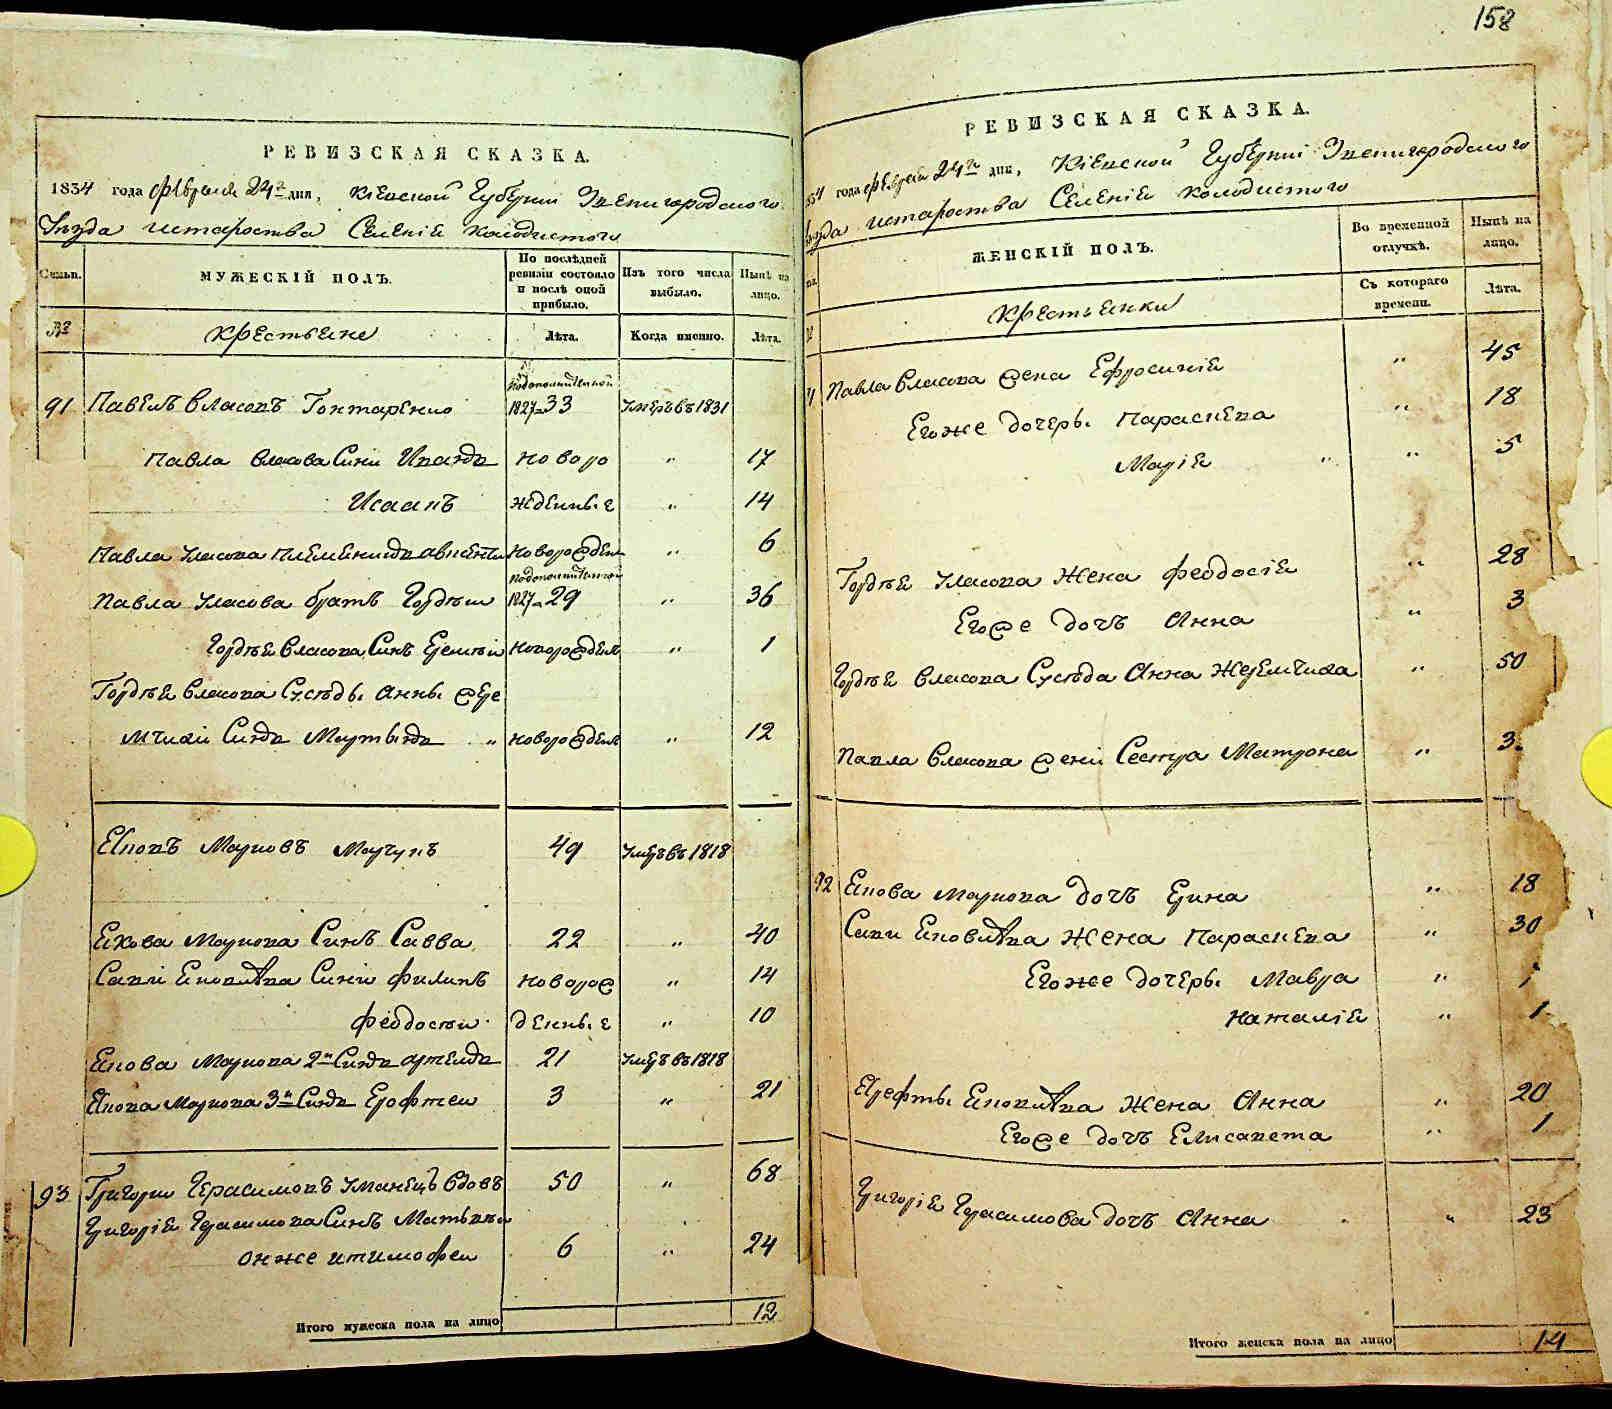 РЕВИЗСКАЯ СКАЗКА.
1834 года февраля 24го дня, Кіевской Губерніи Звенигородского
Уезда истароства Селеніе колодистого
Семьи.
МУЖЕСКІЙ ПОЛЪ.
По послѣдней ревизіи состояло и послѣ оной прибыло.
Изъ того числа выбыло.
Нынѣ на лицо.
№
крестьяне
Лѣта.
Когда именно.
Лѣта.
91 Павелъ власовъ Гонтаренко 1827 33 умеръ въ 1831
Павла власова Сини Иванъ новоро „ 17
Исаакъ жденные „ 14
Павла власова племенникъ новорожден „ 6
Павла власова братъ Гордѣи 1827 29 „ 36
Гордѣя власова Синъ Еремѣи новорожден „ 1
Гордѣя власова Сусѣды Анны Жере
мчихи Синъ Мартынъ „ новорожден „ 12
Яковъ Марковъ 49 умеръ въ 1818
Якова Маркова Синъ Савва 22 „ 40
Сави Яковлѣва Сини филипъ новорож „ 14
феодосѣи денные „ 10
Якова Маркова 2й Синъ артемъ 21 умеръ въ 1818
Якова Маркова 3й Синъ Ерофтеи 3 „ 21
93 Григори Герасимовъ уманецъ вдовъ 50 „ 68
Григорія Герасимова Синъ Матвѣи
онже итимофеи 6 „ 24
Итого мужеска пола на лицо 12
158
РЕВИЗСКАЯ СКАЗКА.
года февраля 24го дня, Кіевской Губерніи Звенигородского
истароства Селеніе колодистого
ЖЕНСКІЙ ПОЛЪ.
Во временной отлучкѣ.
Нынѣ на лицо.
Съ котораго времени.
Лѣта.
крестьянки
Павла власова жена Ефросинія „ 45
Егоже дочеры Параскева „ 18
Марія „ „ 5
Гордѣя власова жена феодосія „ 28
Егоже дочъ Анна „ 3
Гордѣя власова Сусѣда Анна Жеремчиха „ 50
Павла власова жени Сестра Матрона „ 3
92 Якова Маркова дочъ Ерина „ 18
Сави Яковлѣва жена Параскева „ 30
Егоже дочеры Мавра „
Наталія „ 1
Ярефты Яковлѣва жена Анна „ 20
Егоже дочъ Елисавета „ 1
Григорія Герасимова дочъ Анна „ 23
Итого женска пола на лицо 14